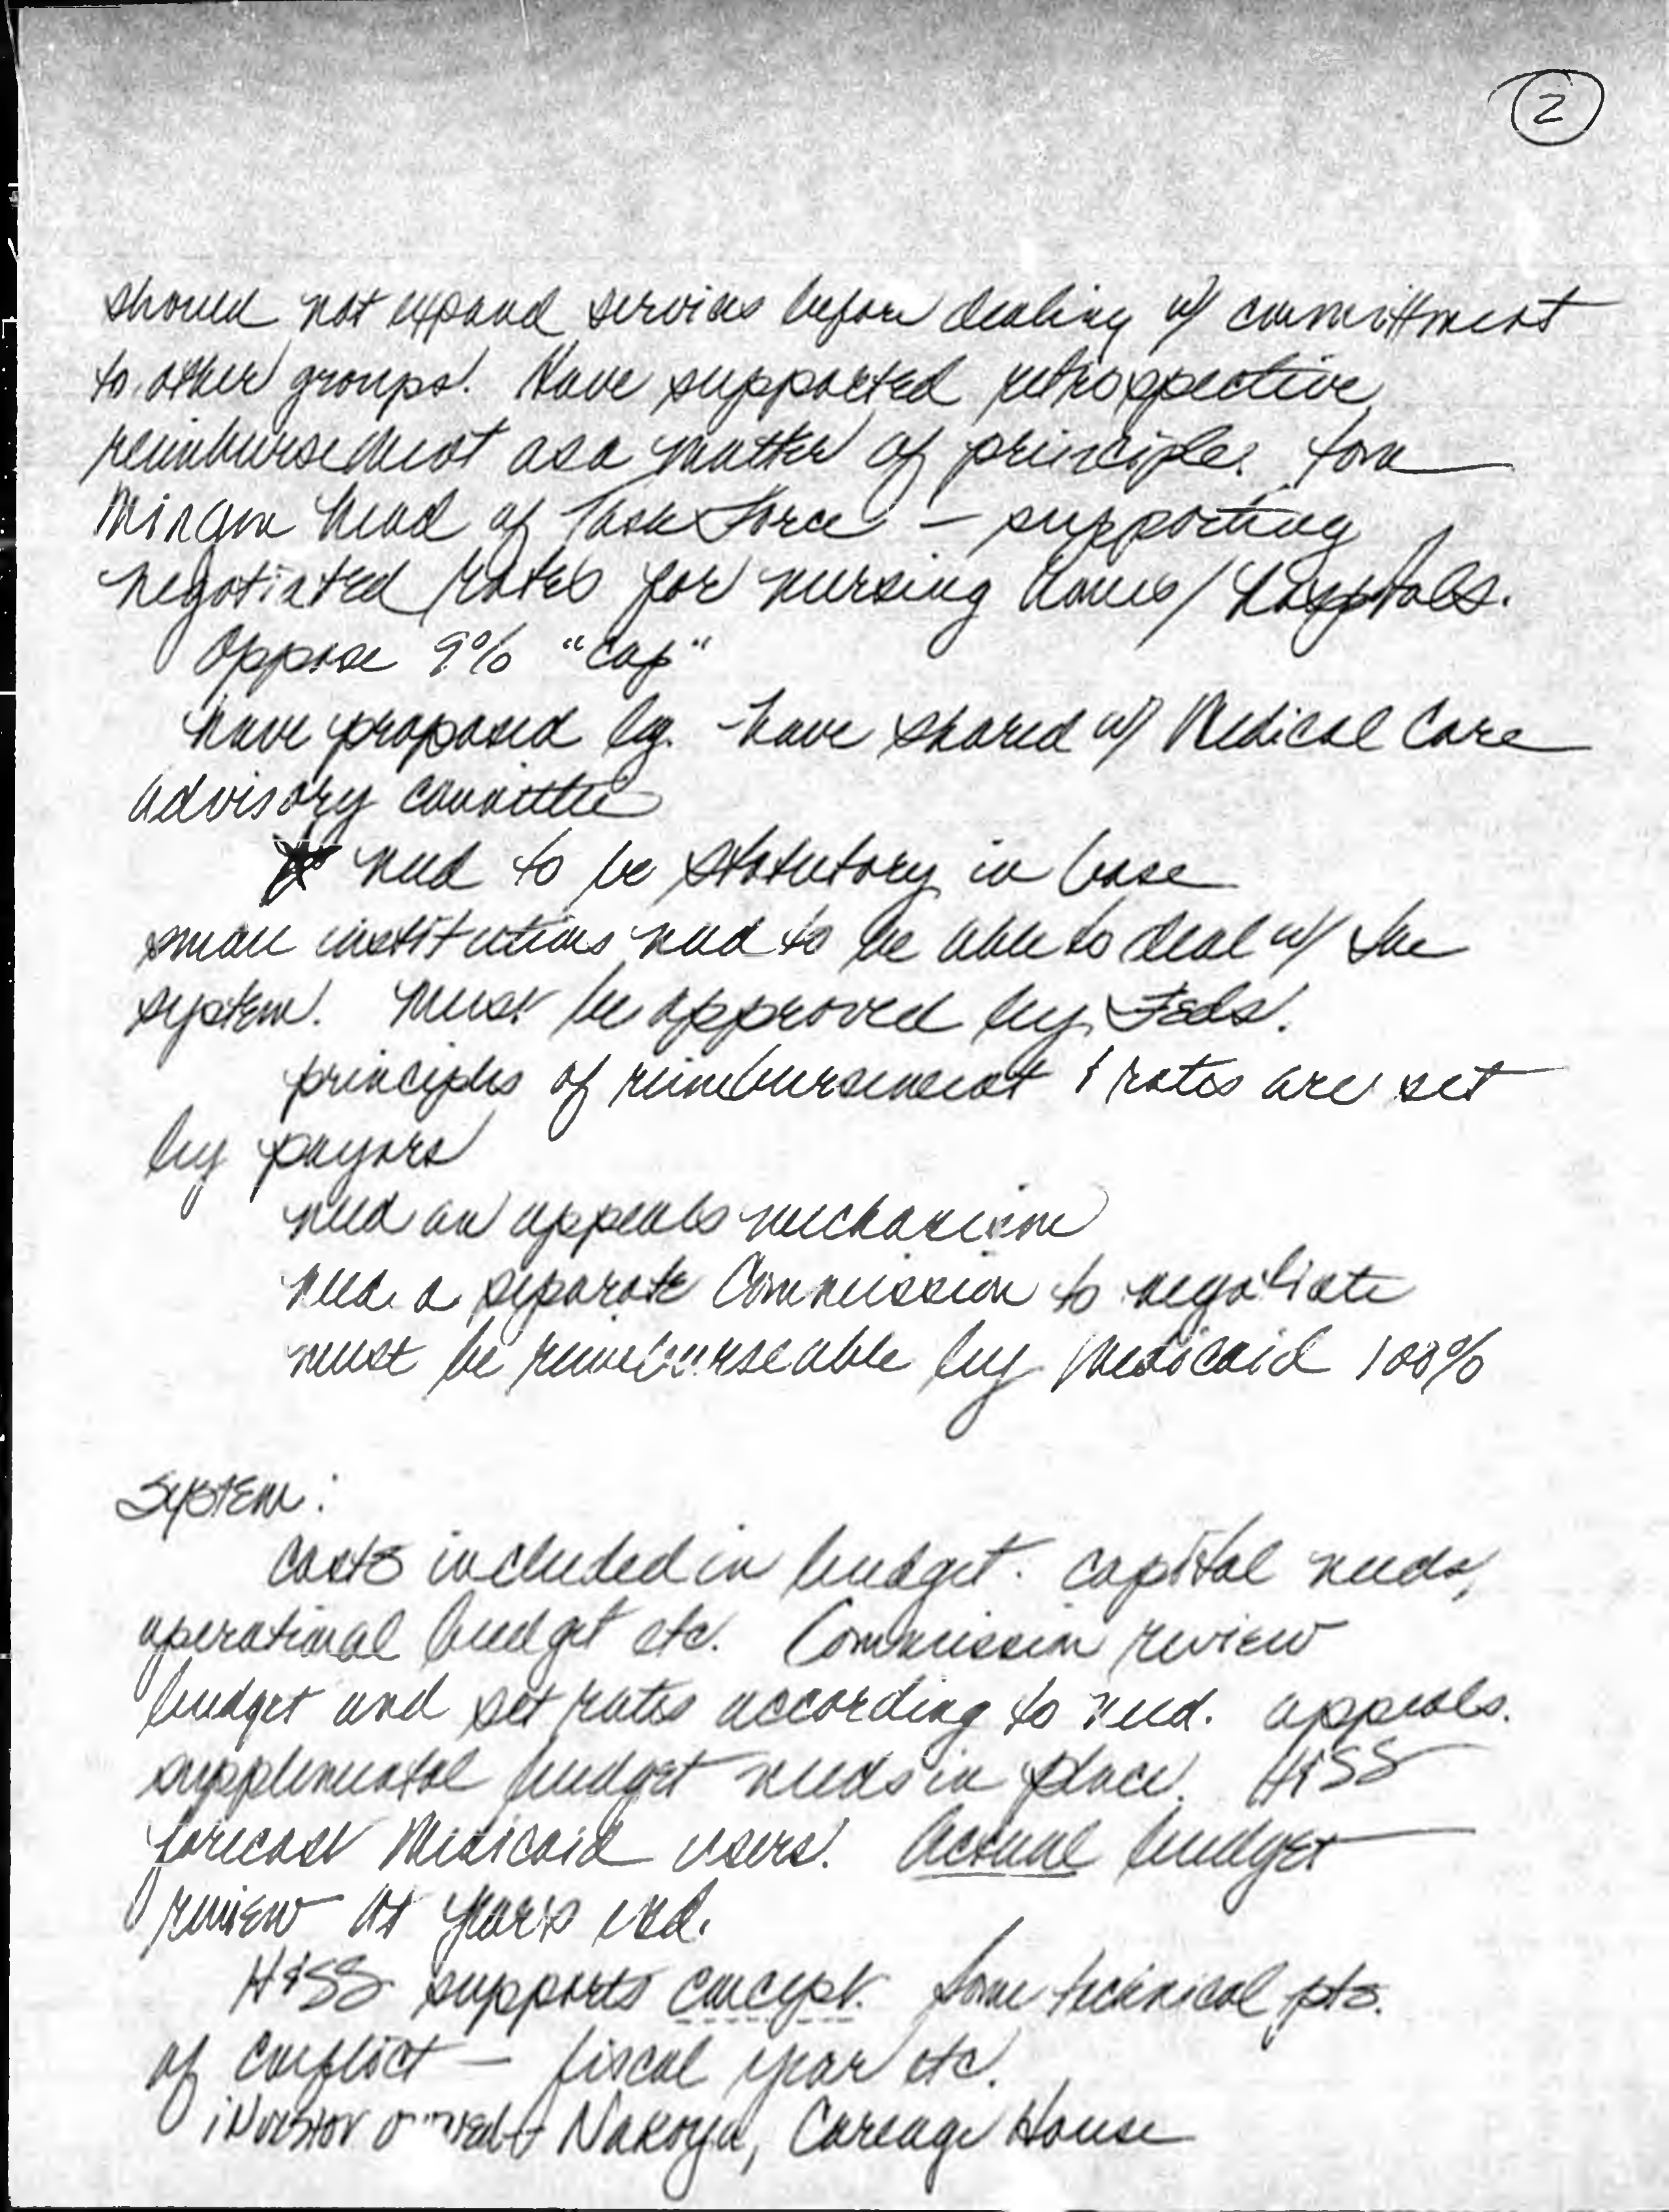 2
should not expand services before dealing w/ committment
to other groups. Have supported retrospective
reimbursement as a matter of principle. Tom
head of Task Force – supporting
negotiated rates for nursing homes/hospitals.
Oppose 9% "cap"
have proposed leg. have shared w/ Medical Care
Advisory Committee
need to be statutory in base
small institutions need to be able to deal w/ the
system. Must be approved by Feds.
principles of reimbursement & rates are set
by payors
need an appeals mechanism
need a separate Commission to negotiate
must be reimburseable by Medicaid 100%
System:
Costs included in budget. capital needs,
operational budget etc. Commission review
budget and set rates according to need. appeals.
supplemental budget needs in place. H&SS
forecast Medicaid users. Actual budget
review at years end.
H&SS supports concept. Some technical pts.
of conflict – fiscal year etc.
investor owned Nakoyia, Careage House